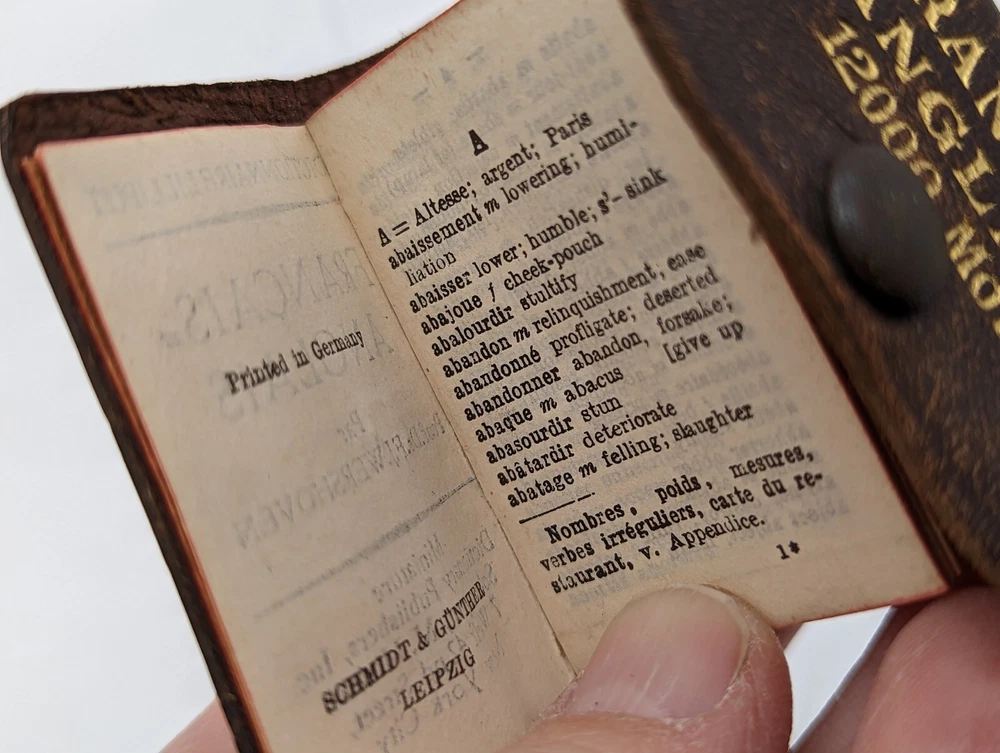 Printed in Germany
SCHMIDT & GÜNTHER
LEIPZIG
A
A = Altesse; argent; Paris
abaissement m lowering; humi-
liation
abaisser lower; humble; s'– sink
abajoue f cheek-pouch
abalourdir stultify
abandon m relinquishment, ease
abandonné profligate; deserted
abandonner abandon, forsake;
abaque m abacus [give up
abasourdir stun
abâtardir deteriorate
abatage m felling; slaughter
Nombres, poids, mesures,
verbes irréguliers, carte du re-
staurant, v. Appendice.
1*
12000 MO